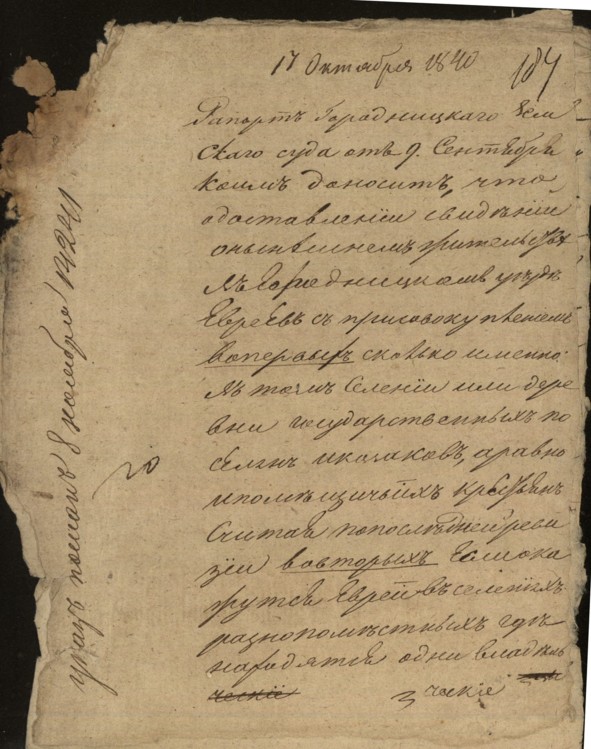 17 Октября 1840
184
Рапортъ Городницкаго Зем
скаго суда отъ 9. Сентября
коимъ доноситъ, что
одоставленіи свидѣніи
онынѣшнемъ жительствѣ
въ Городницкомъ уѣздѣ
Евреевъ съ присовокупленіемъ
вопервыхъ сколько именно
въ томъ Селеніи или дере
вни государственныхъ по
селянъ иказаковъ, аравно
ипомѣщичьихъ крестьянъ
Считая попослѣдней реви
зіи вовторыхъ Если ока
жутся Евреи въ селеніяхъ
разнопомѣстныхъ гдѣ
находятся одни владѣль
ческіе
ческіе
указъ посланъ 8 ноября